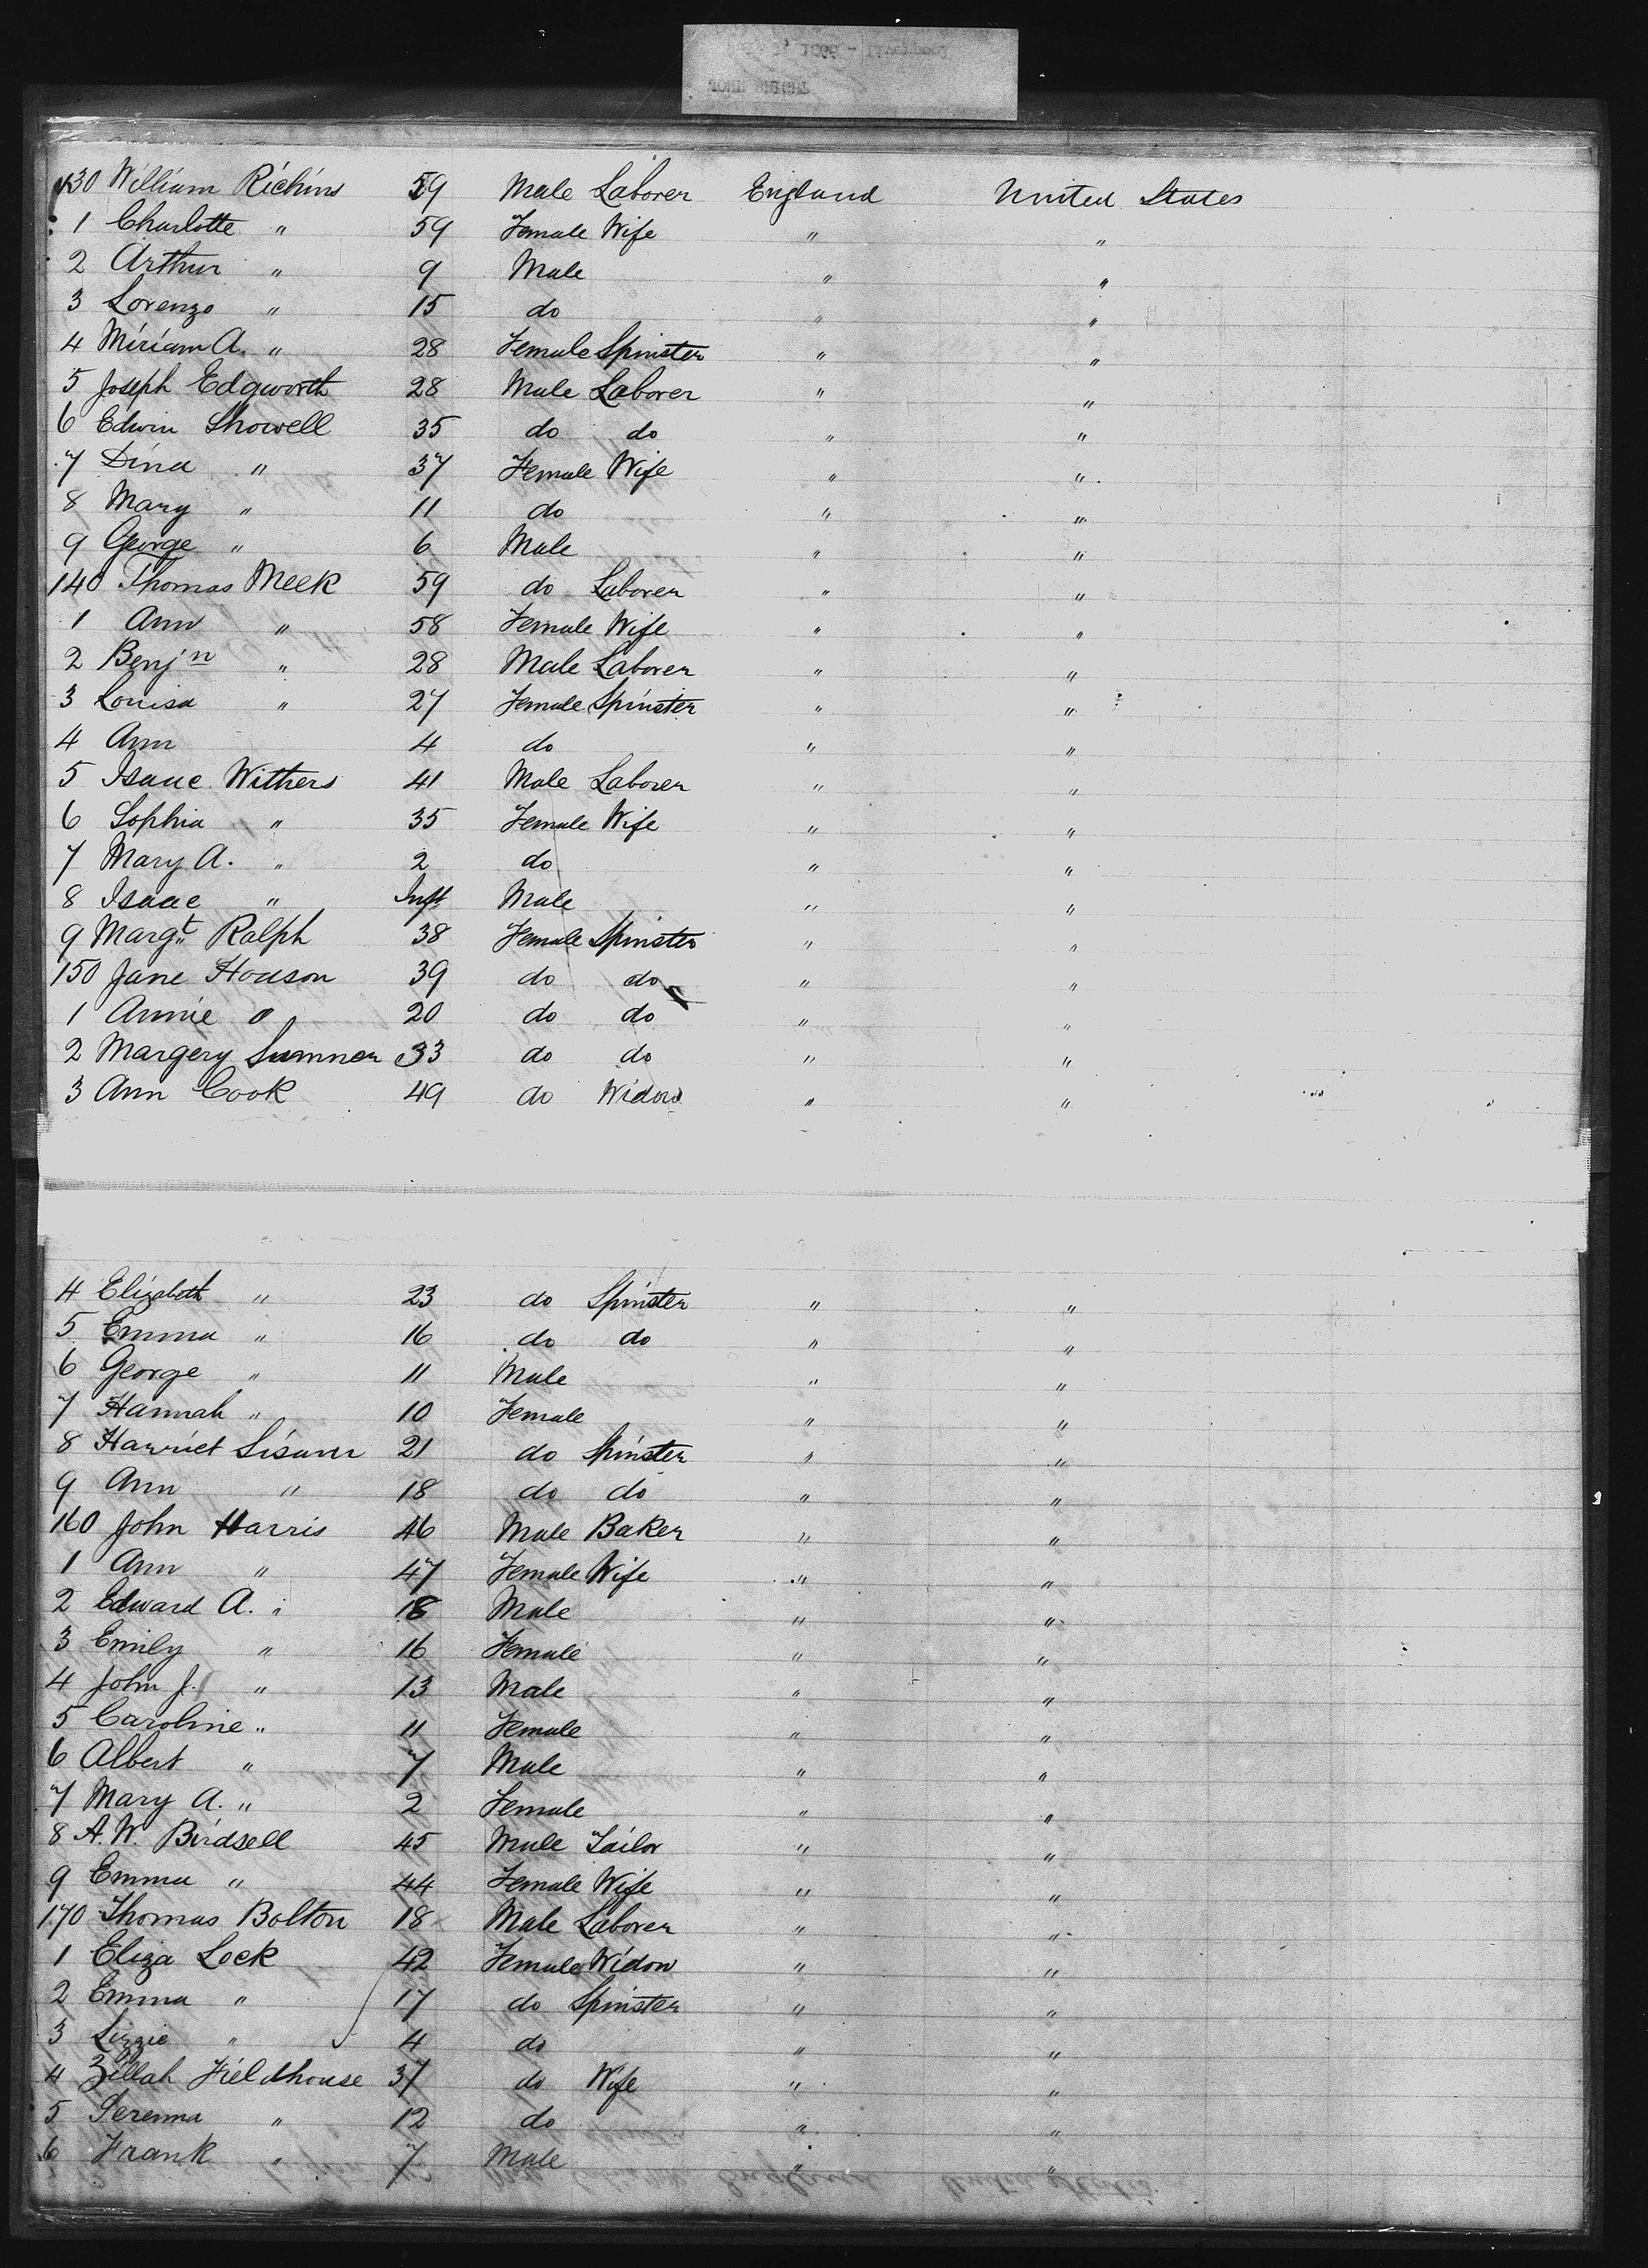 130 William Richins 59 Male Laborer England United States
1 Charlotte " 59 Female Wife " "
2 Arthur " 9 Male " "
3 Lorenzo " 15 do " "
4 Miriam A. " 28 Female Spinster " "
5 Joseph Edgworth 28 Male Laborer " "
6 Edwin Showell 35 do do " "
7 Dina " 37 Female Wife " "
8 Mary " 11 do " "
9 George " 6 Male " "
140 Thomas Meek 59 do Laborer " "
1 Ann " 58 Female Wife " "
2 Benjn " 28 Male Laborer " "
3 Louisa " 27 Female Spinster " "
4 Ann 4 do " "
5 Isaac Withers 41 Male Laborer " "
6 Sophia " 35 Female Wife " "
7 Mary A. " 2 do " "
8 Isaac " Inft Male " "
9 Margt Ralph 38 Female Spinster " "
150 Jane Houson 39 do do " "
1 Annie " 20 do do " "
2 Margery Sumner 33 do do " "
3 Ann Cook 49 do Widow " "
4 Elizabeth " 23 do Spinster " "
5 Emma " 16 do do " "
6 George " 11 Male " "
7 Hannah " 10 Female " "
8 Harriet Lisum 21 do Spinster " "
9 Ann " 18 do do " "
160 John Harris 46 Male Baker " "
1 Ann " 47 Female Wife " "
2 Edward A. " 18 Male " "
3 Emily " 16 Female " "
4 John J. " 13 Male " "
5 Caroline " 11 Female " "
6 Albert " 7 Male " "
7 Mary A. " 2 Female " "
8 A. W. Birdsell 45 Male Tailor " "
9 Emma " 44 Female Wife " "
170 Thomas Bolton 18 Male Laborer " "
1 Eliza Lock 42 Female Widow " "
2 Emma " 17 do Spinster " "
3 Lizzie " 4 do " "
4 Zillah Fieldhouse 37 do Wife " "
5 Serenna " 12 do " "
6 Frank " 7 Male " "